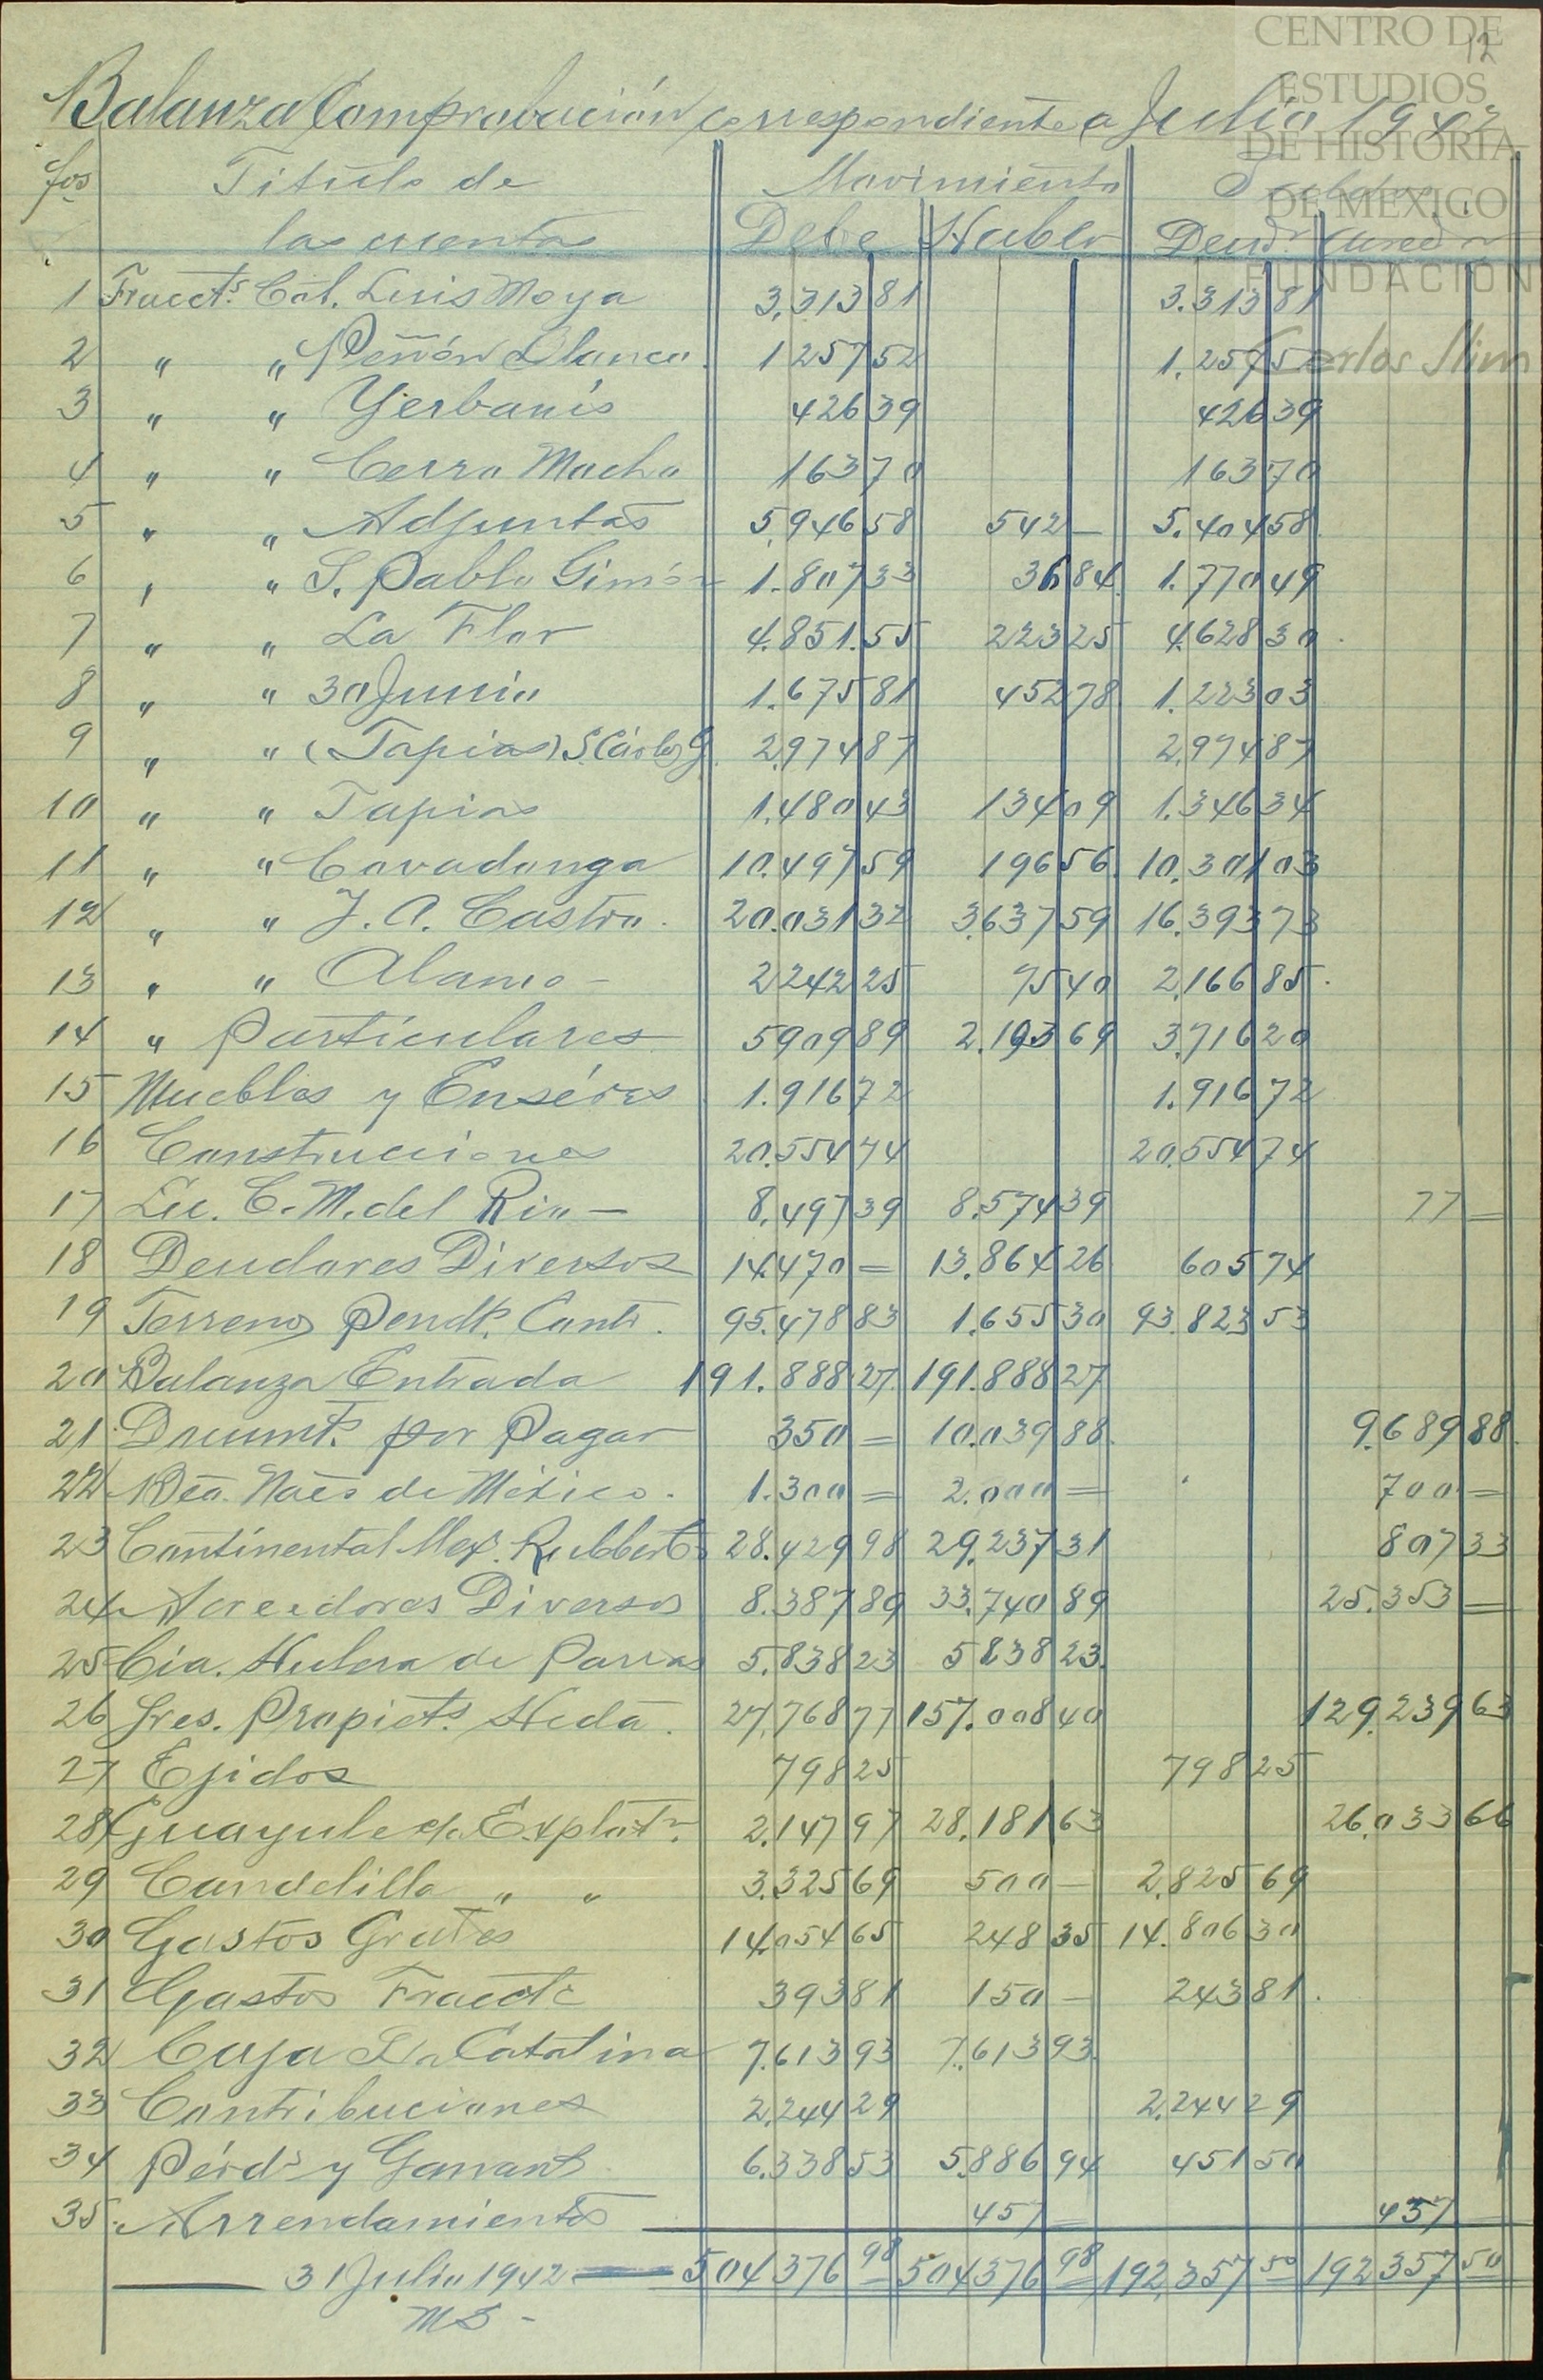 CENTRO DE
ESTUDIOS
DE HISTORIA
DE MÉXICO
FUNDACIÓN
Carlos Slim
12
Balanza Comprobación correspondiente a Julio 1942
fos Titulo de Movimiento
las cuentas Debe Haber Deudr Acreedr
1 Fraccts. Col. Luis Moya 3,313 81 3.313 81
2 " " Peñón Blanco. 1257 52 1.257 52
3 " " Yerbanís 426 39 426 39
4 " " Cerro Macho 163 70 163 70
5 " " Adjuntas 5,946 58 542 — 5.404 58
6 " " S. Pablo Gimón 1.807 33 36 84 1.770 49
7 " " La Flor 4.851.55 223 25 4.628 30
8 " " 30 Junio 1.675 81 452 78 1.223 03
9 " " (Tapias) S. Carlos G. 2.974 87 2.974 87
10 " " Tapias 1.480 43 134 09 1.346 34
11 " " Covadonga 10.497 59 196 56 10.301 03
12 " " J. A. Castro. 20.031 32 3.637 59 16.393 73
13 " " Alamo - 2242 25 75 40 2.166 85
14 " Particulares 5909 89 2.193 69 3.716 20
15 Muebles y Enséres 1.916 72 1.916 72
16 Construcciones 20.554 74 20.554 74
17 Lic. C. M. del Rio — 8.497 39 8.574 39 77 —
18 Deudores Diversos 14.470 — 13.864 26 605 74
19 Terrenos Pendts. Contr. 95.478 83 1.655 30 93.823 53
20 Balanza Entrada 191.888 27 191.888 27
21 Documts. por Pagar 350 — 10.039 88 9.689 88
22 Bco. Nac. de México. 1.300 — 2.000 — 700 —
23 Continental Mex. Rubber Co 28.429 98 29.237 31 807 33
24 Acreedores Diversos 8.387 89 33.740 89 25.353 —
25 Cia. Hulera de Parras 5.838 23 5838 23
26 Sres. Propiets. Hcda. 27.768 77 157.008 40 129.239 63
27 Ejidos 798 25 798 25
28 Guayule de Explotn. 2.147 97 28.181 63 26.033 66
29 Candelilla " " 3.325 69 500 — 2.825 69
30 Gastos Grales 14.054 65 248 35 14.806 30
31 Gastos Fraccte 393 81 150 — 243 81
32 Caja La Catalina 7.613 93 7.613 93
33 Contribuciones 2.244 29 2.244 29
34 Pérds y Gananc. 6.338 53 5.886 94 451 50
35. Arrendamientos 457 — 457 —
31 Julio 1942 504376 98 504376 98 192,357 50 192357 50
MS -